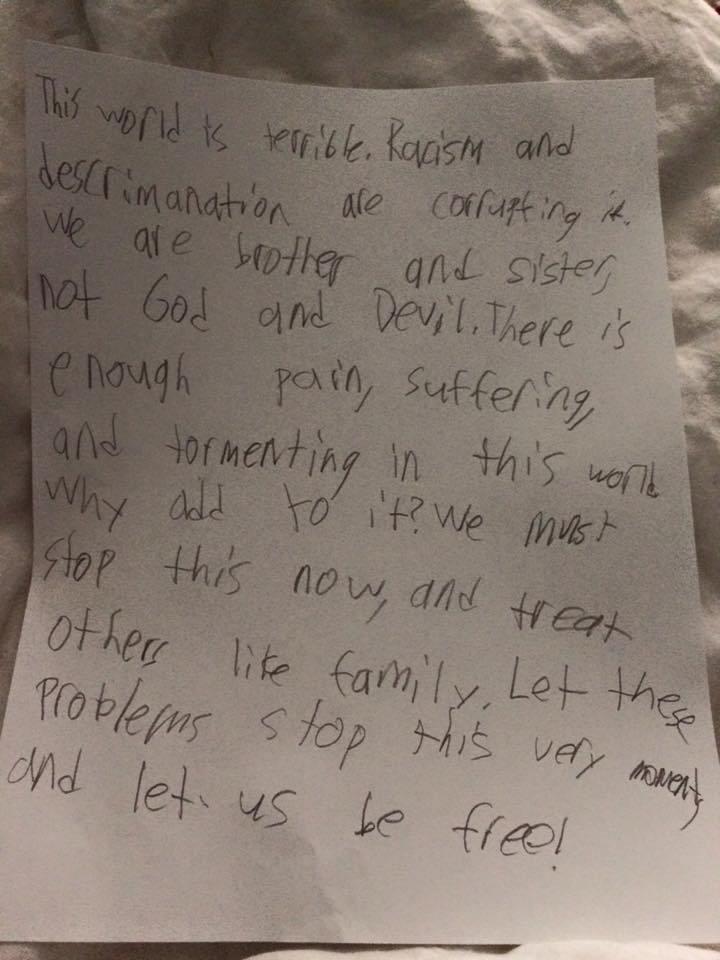 This world is terrible. Racism and
descrimanation are corrupting it.
We are brother and sister,
not God and Devil. There is
enough pain, suffering,
and tormenting in this world
Why add to it? We must
stop this now, and treat
others like family. Let these
problems stop this very moment,
and let us be free!